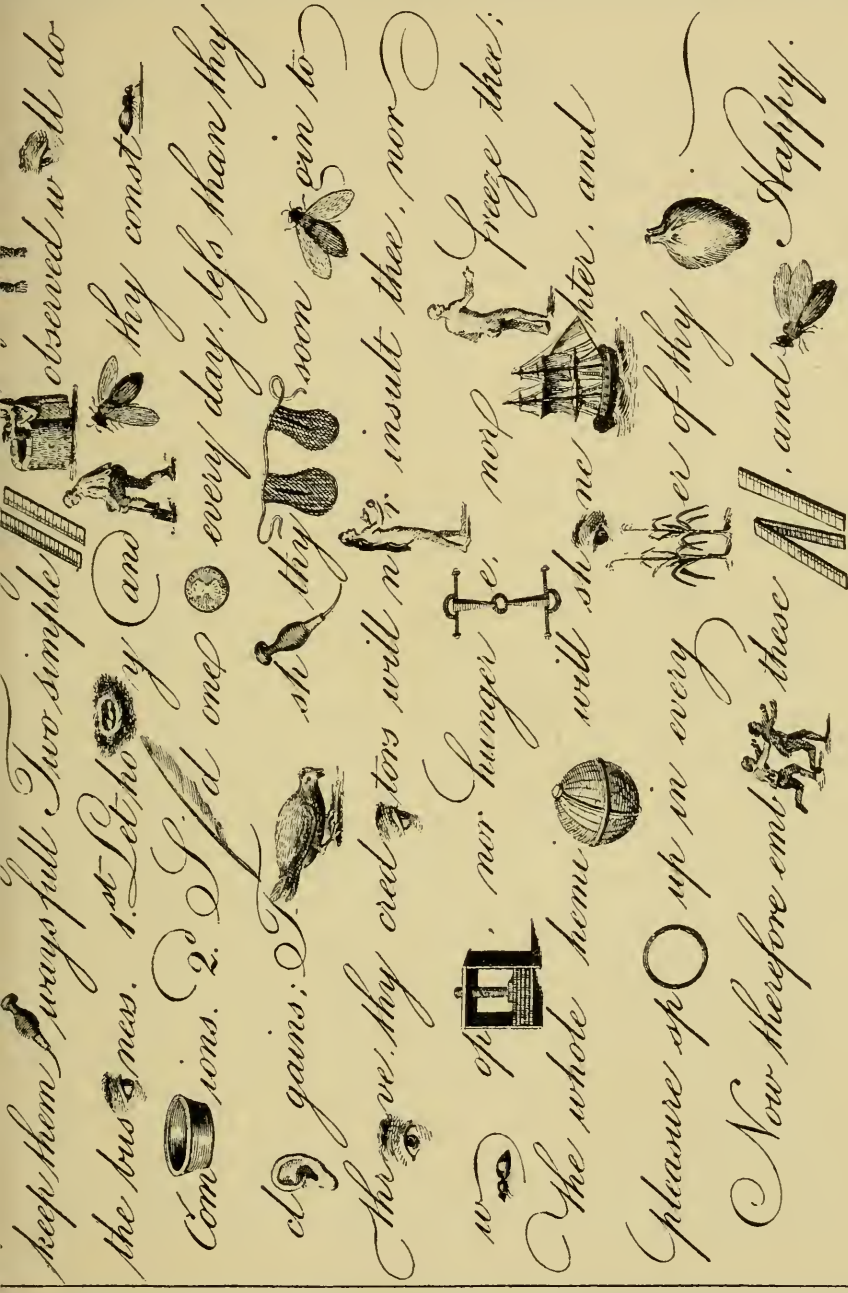 keep them ways full Two simple observed w ll do
the bus ness. 1.st Let ho y and thy const
Com ions. 2.d S d one every day. less than thy
cl gains; T sh thy soon gin to
Thr ve. thy cred tors will n r insult thee. nor
w op . nor hunger e. nor freeze thee;
The whole hemi will sh ne hter. and
pleasure sp up in every er of thy .
Now therefore emb these . and Happy.